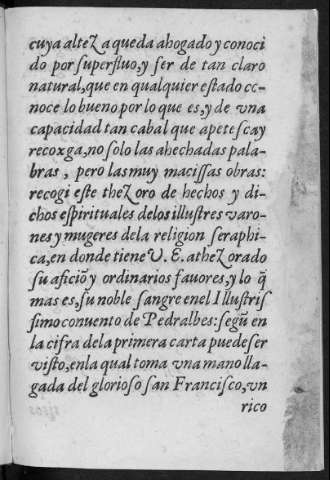 cuya alteza queda ahogado y conoci
do por superfluo, y ser de tan claro
natural, que en qualquier estado co-
noce lo bueno por lo que es, y de vna
capacidad tan cabal que apetesca y
recoxga, no solo las ahechadas pala-
bras, pero las muy macissas obras:
recogi este thezoro de hechos y di-
chos espirituales delos illustres varo-
nes y mugeres dela religion seraphi-
ca, en donde tiene V. E. athezorado
su aficiõ y ordinarios fauores, y lo q̃
mas es, su noble sangre enel Illustris
simo conuento de Pedralbes: segũ en
la cifra dela primera carta puede ser
visto, enla qual toma vna mano lla-
gada del glorioso san Francisco, vn
rico